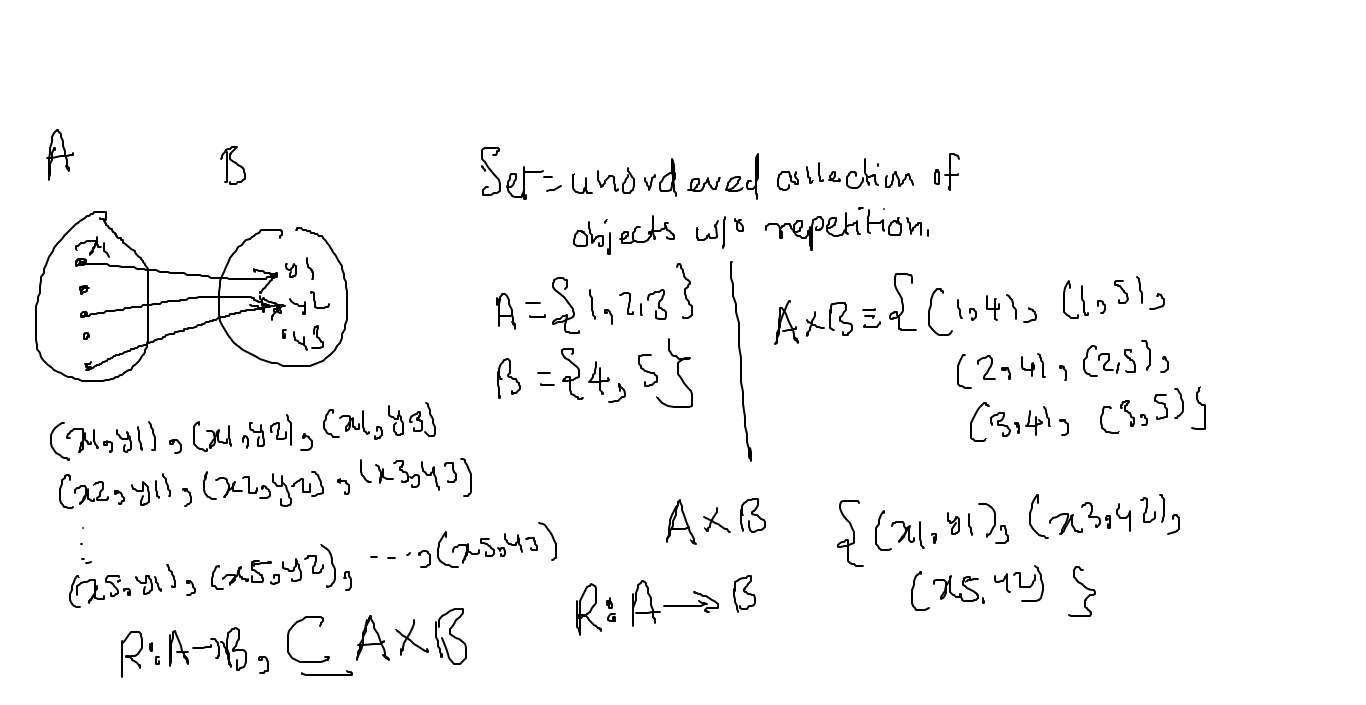 A B
x1
y1
y2
y3
(x1,y1), (x1,y2), (x1,y3)
(x2,y1), (x2,y2), (x3,y3)
⋮
(x5,y1), (x5,y2), ---,(x5,y3)
R:A→B, ⊆ A×B
Set = unordered collection of
objects w/o repetition.
A = {1,2,3}
B = {4, 5}
A×B ≡ {(1,4), (1,5),
(2,4), (2,5),
(3,4), (3,5)}
A×B
R:A→B
{(x1,y1), (x3,y2),
(x5,y2) }